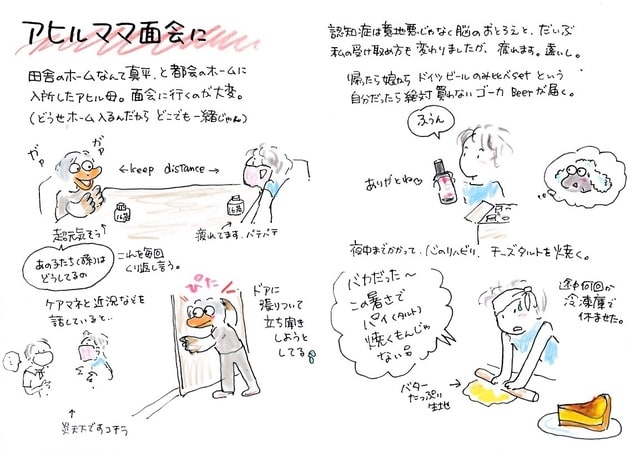 アヒルママ面会に
田舎のホームなんて真平、と都会のホームに
入所したアヒル母。面会に行くのが大変。
(どうせホーム入るんだから どこでも一緒じゃん)
ガァ
ガァ
←keep distance→
超元気そう↑
↑疲れてます。バテバテ
あの子たち(孫)は
どうしてるの
これを毎回
くり返し言う。
ケアマネと近況などを
話していると..
ぴた!
ドアに
張りついて
立ち聞き
しようと
してる
↑
炎天下ですコチラ
認知症は意地悪じゃなく脳のおとろえと、だいぶ
私の受け取め方も変わりましたが、疲れます。遠いし。
帰ったら嫁から ドイツビールのみ比べsetという
自分だったら絶対買わないゴーカBeerが届く。
ふうん
ありがとね♡
夜中までかかって、心のリハビリ、チーズタルトを焼く。
バカだった〜
この暑さで
パイ(タルト)
焼くもんじゃ
ない
途中何回か
冷凍庫で
休ませた。
バター→
たっぷり
生地